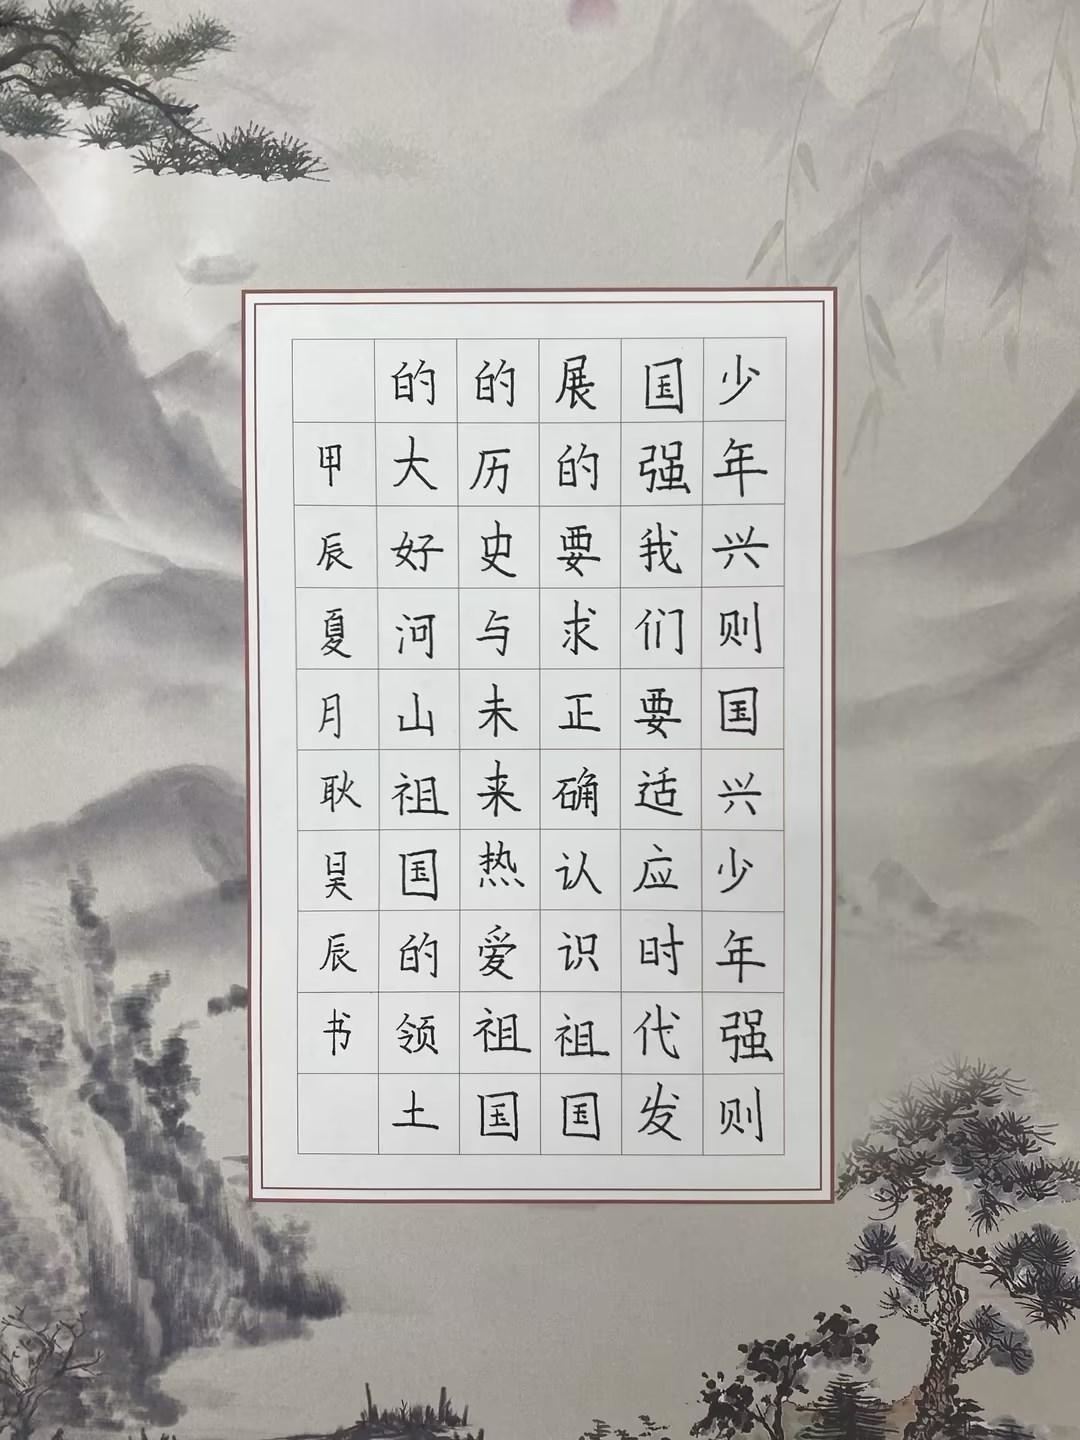 少年兴则国兴少年强则
国强我们要适应时代发
展的要求正确认识祖国
的历史与未来热爱祖国
的大好河山祖国的领土
甲辰夏月耿昊辰书